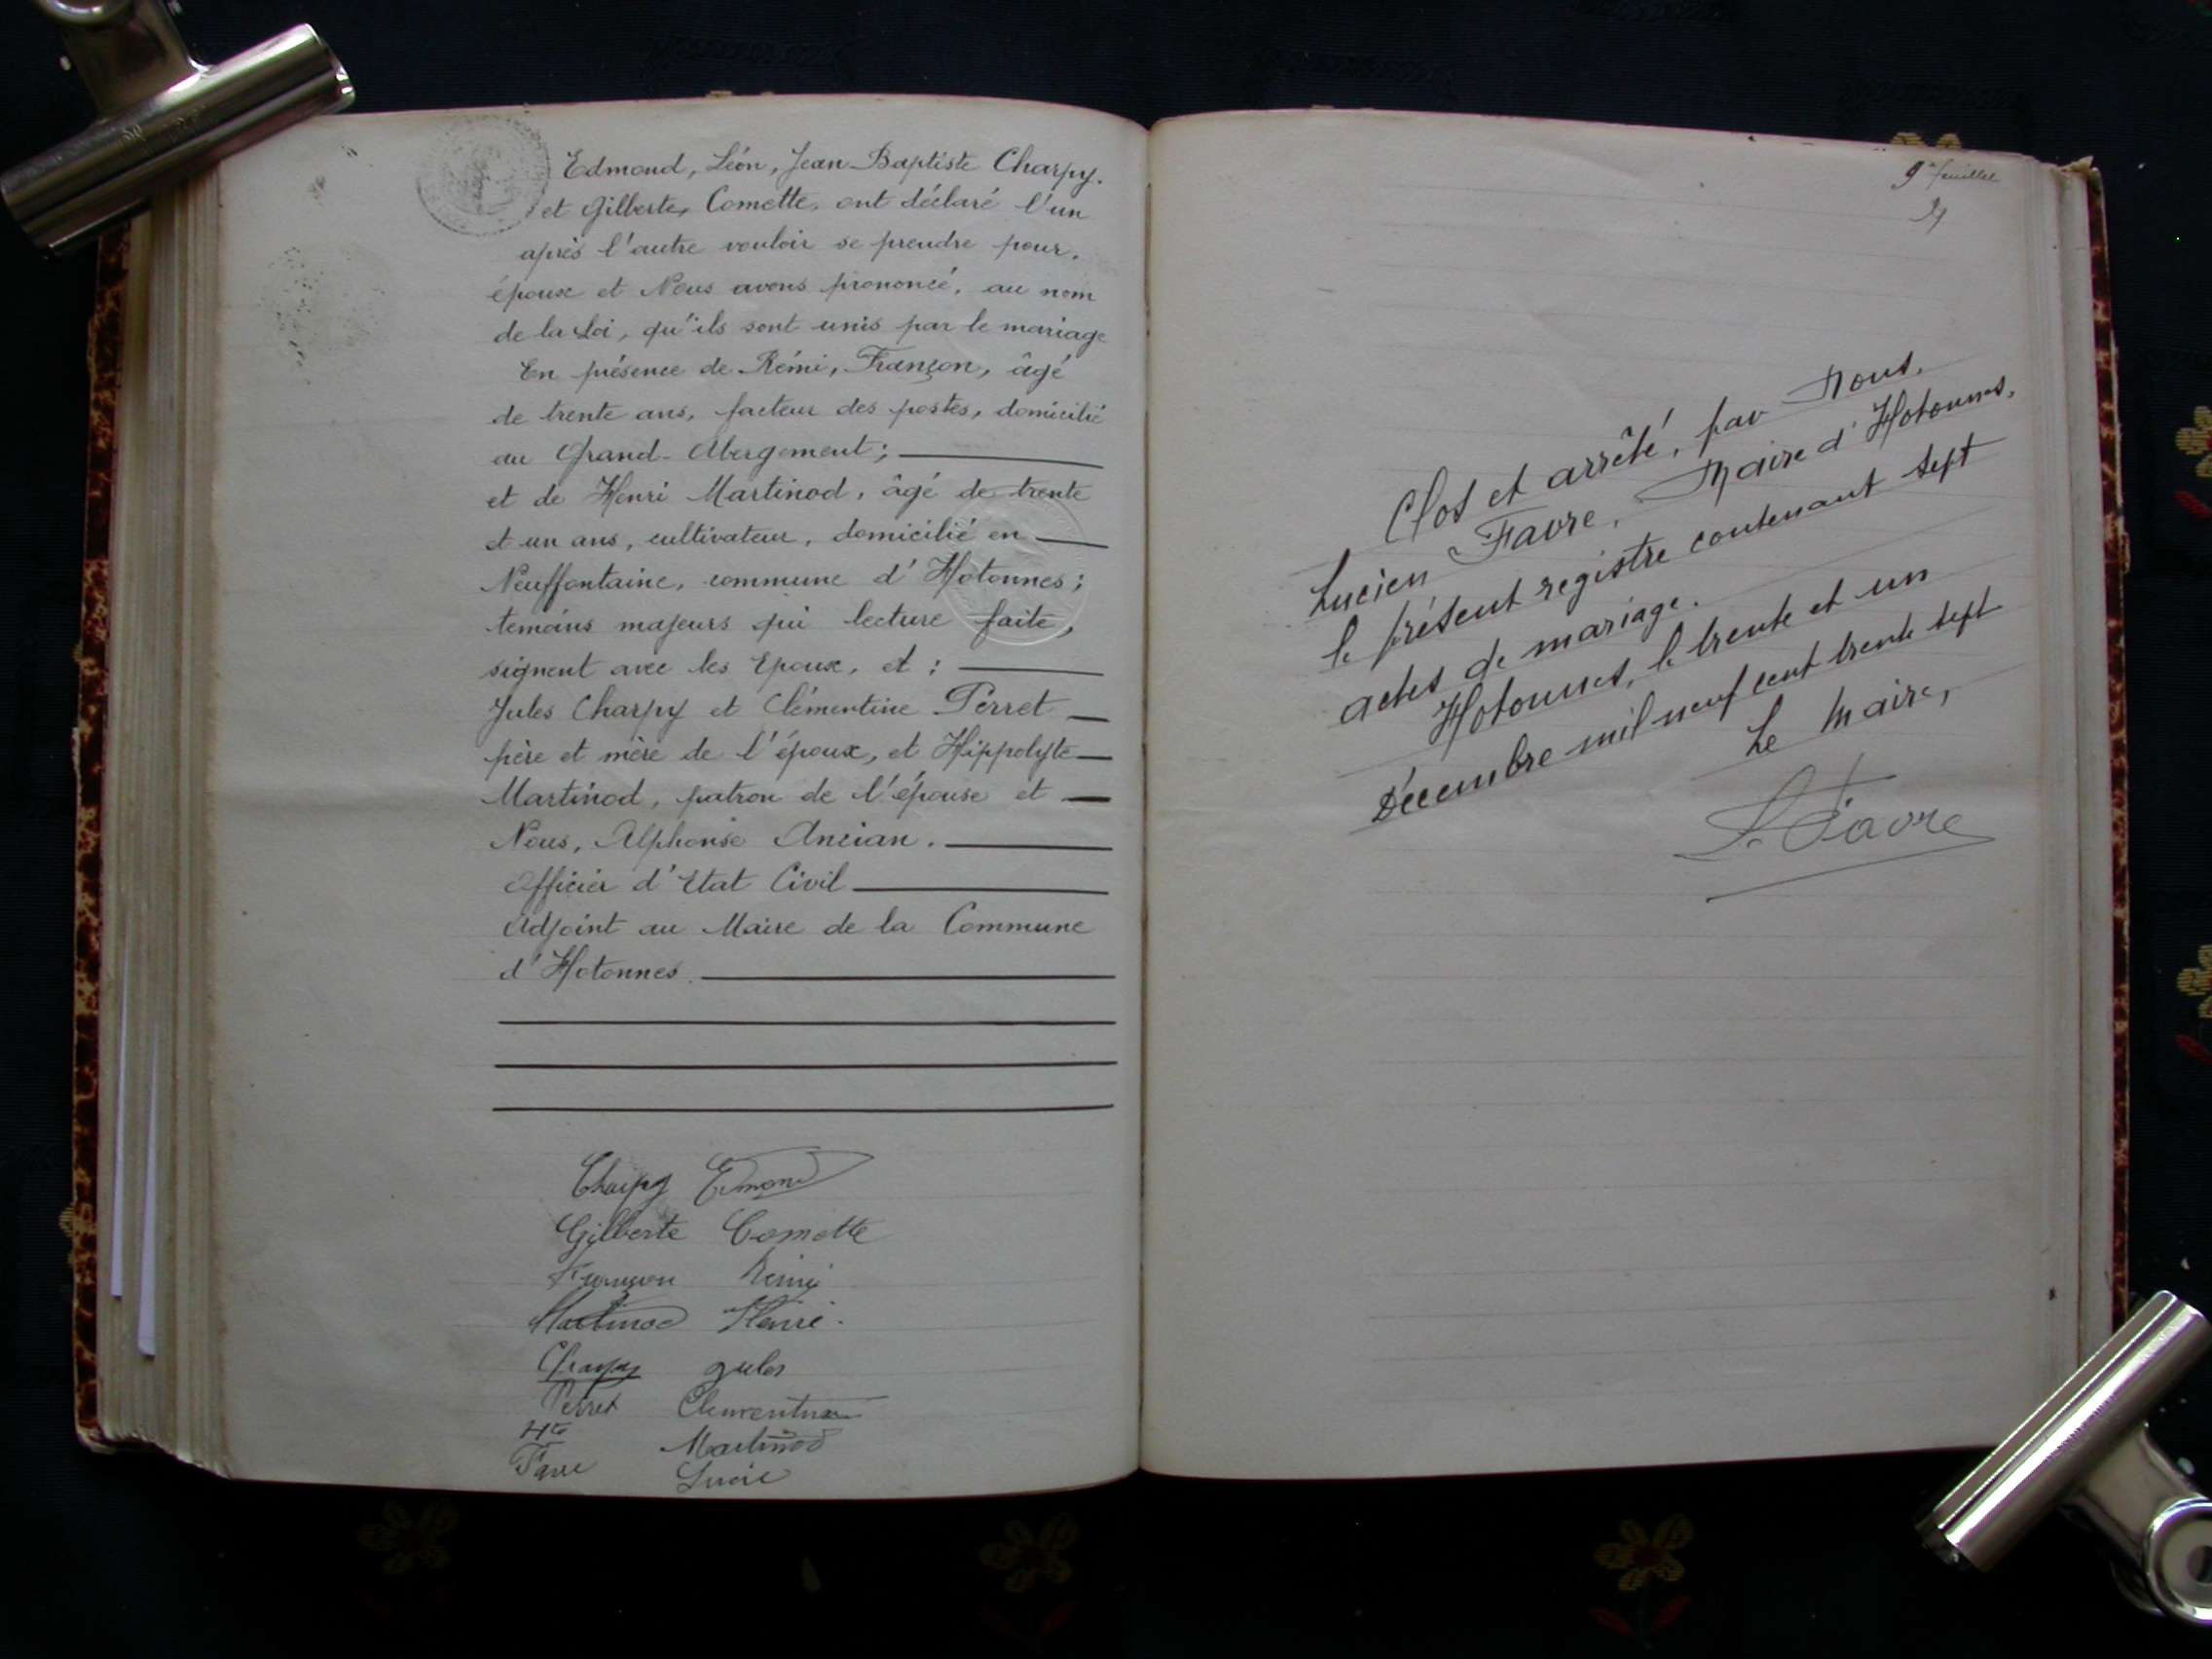 Edmond, Léon, Jean-Baptiste Charpy.
et Gilberte, Comette, ont déclaré l'un
après l'autre vouloir se prendre pour.
époux et Nous avons prononcé, au nom
de la Loi, qu'ils sont unis par le mariage
En présence de Rémi, Françon, âgé
de trente ans, facteur des postes, domicilié
au Grand-Abergement;
et de Henri Martinod, âgé de trente
et un ans, cultivateur, domicilié en
Neuffontaine, commune d'Hotonnes;
temoins majeurs qui lecture faite,
signent avec les Epoux, et :
Jules Charpy et Clémentine Perret
père et mère de l'époux, et Hippolyte
Martinod, patron de l'épouse et
Nous, Alphonse Ancian.
Officier d'Etat Civil
Adjoint au Maire de la Commune
d'Hotonnes.
Charpy Edmond
Gilberte Comette
Françon Rémi
Martinod Henri.
Charpy Jules
Perret Clementine
Hte Martinod
Favre Lucie
9e feuillet
Clos et arrêté, par Nous,
Lucien Favre, Maire d'Hotonnes,
le présent registre contenant sept
actes de mariage.
Hotonnes, le trente et un
Décembre mil neuf cent trente sept
Le Maire,
L. Favre